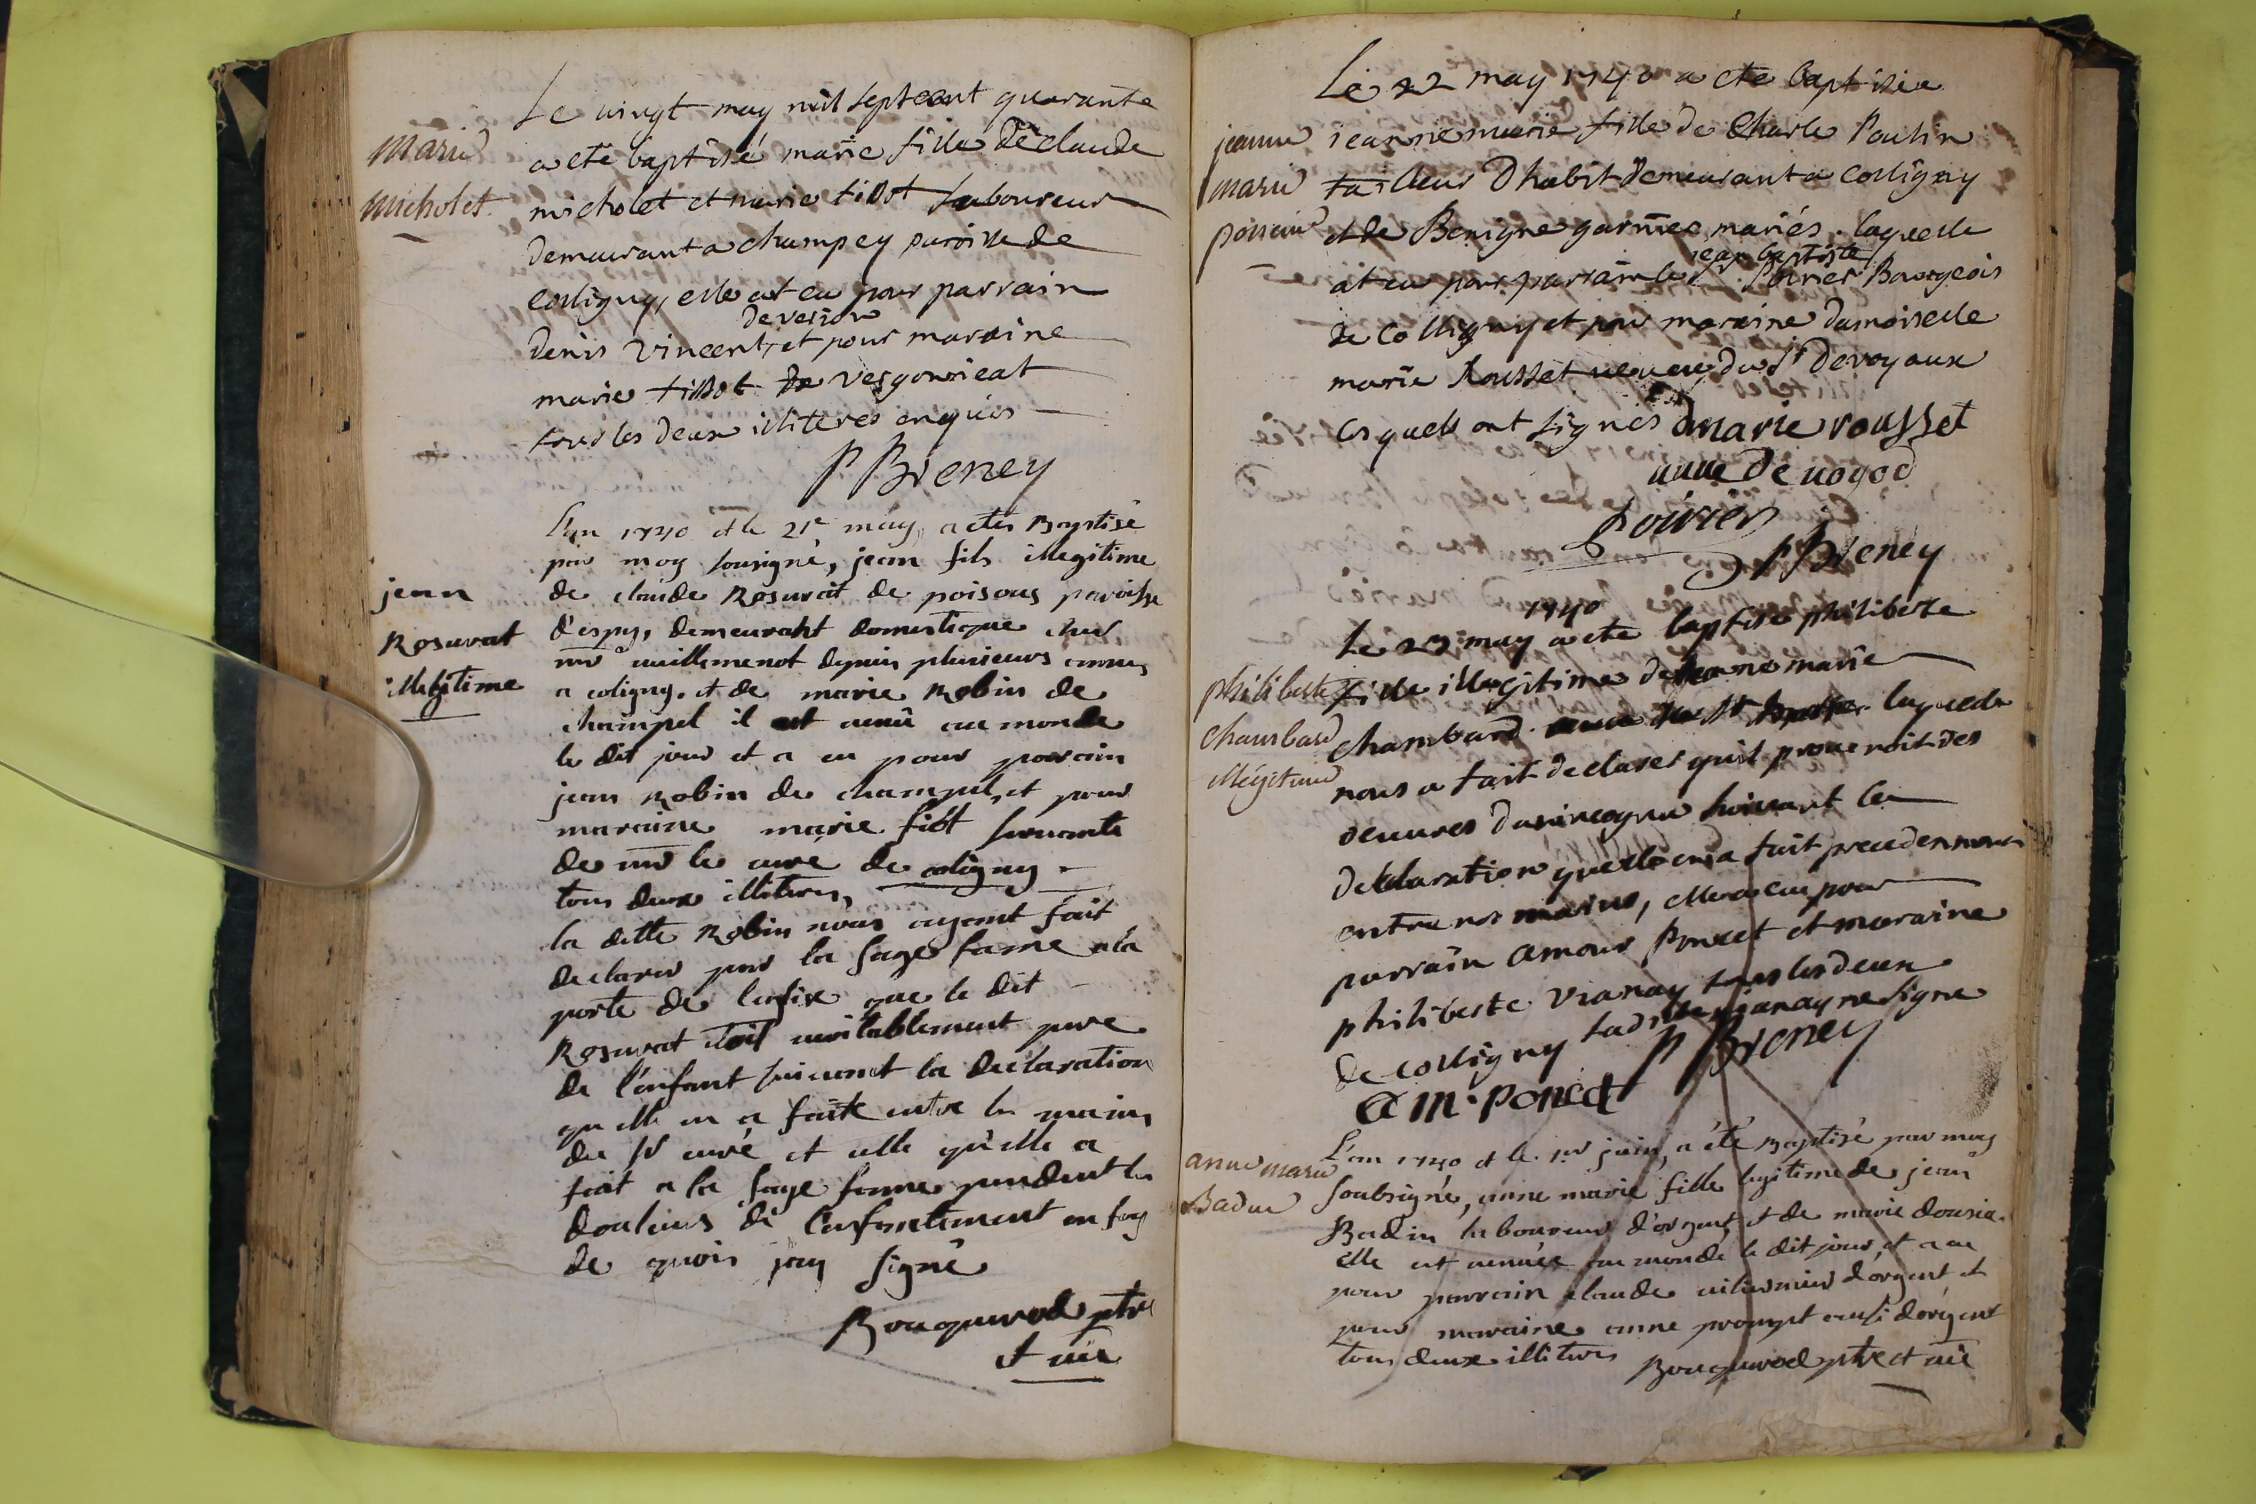 Le vingt may mil septcent quarante
Marie
a ete baptisé marie fille de claude
Micholet
micholet et marie tissot laboureur
demeurant a champey paroisse de
colligny, elle at eu pour parrain
de verjon
denis vincent, et pour maraine
marie tissot de vergonjeat
tous les deux illiteres enquis
P Breney
L'an 1740 et le 21e may a etés Baptisé
par moy sousigné, jean fils illegitime
jean
de claude Rosurat de poisous paroisse
Rosurat
d'espy, demeurant domestique chez
illegitime
mr vuillemenot depuis plusieurs années
a coligny. et de marie Robin de
champel il est venu au monde
le dit jour et a eu pour parrain
jean Robin de champel, et pour
maraine marie fiot servante
de mr le curé de coligny
tous deux illiteres,
la ditte Robin nous ayant fait
declarer par la sage fame a la
porte de leglise que le dit
Rosurat etoit veritablement pere
de l'enfant suivant la declaration
qu'elle en a faite entre les mains
du Sr curé et celle qu'elle a
fait a la sage fame pendent les
douleurs de l'enfentement en foy
de quois jay signé
Bouquerod ptre
et vic
Le 22 may 1740 a ete baptisée
jeanne
jeanne marie fille de Charle Poulin
marie
tailleur D'habit demeurant a Colligny
et de Benigne garnier mariés. laquelle
jean baptiste
at eu pour parrain le Sr Poirier Bourgeois
de Colligny et pour maraine damoiselle
marie Rousset veuve du Sr devoyaux
lesquels ont signés marie rousset
veuve de vogod
poirier
P Breney
1740
Le 23 may a ete baptise philiberte
philiberte
fille illegitime de jeanne marie
Chambard
chambard laquelle
illégitime
nous a fait declarer quil provenoit des
oeuvres dun incognu suivant la
declaration quelle en a fait precedenment
entre nos mains, elle a eu pour
parrain amour Poncet et maraine
philiberte vianay tous les deux
de colligny ladite vianay ne signe
P Breney
am. poncet
L'an 1740 et le 1er juin, a été Baptisé par moy
anne marie
soubsigné, anne marie fille legitime de jean
Badin
Badin laboureur d'orgent et de marie
elle est venuée au monde le dit jour, et a eu
pour parrain claude d'orgent et
pour maraine anne prompt aussi d'orgent
tous deux illiteres Bouquerod ptre et vic